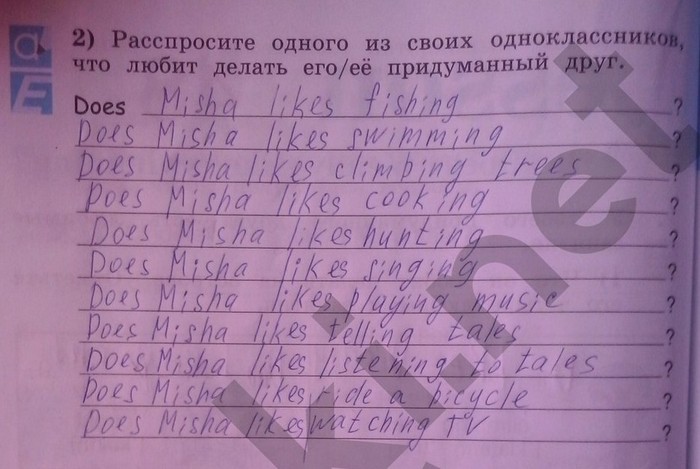 2) Расспросите одного из своих одноклассников,
что любит делать его/её придуманный друг.
Does Misha likes fishing ?
Does Misha likes swimming ?
Does Misha likes climbing trees ?
Does Misha likes cooking ?
Does Misha likes hunting ?
Does Misha likes singing ?
Does Misha likes playing music ?
Does Misha likes telling tales ?
Does Misha likes listening to tales ?
Does Misha likes ride a bicycle ?
Does Misha likes watching TV ?
ki.net